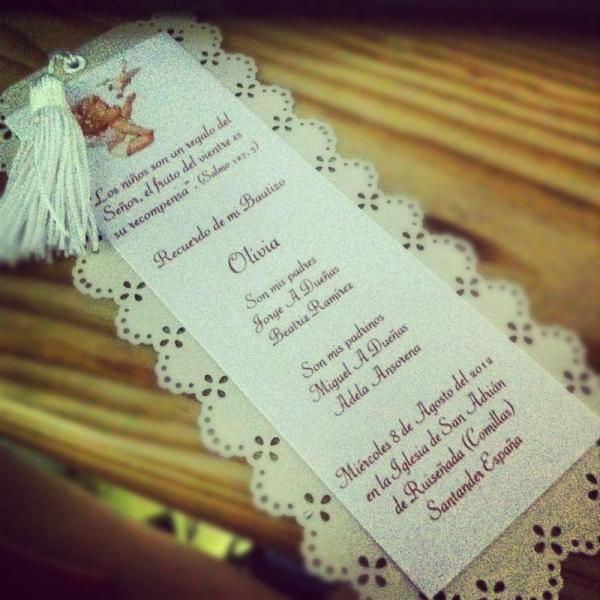 Los niños son un regalo del
Señor, el fruto del vientre es
su recompensa". (Salmo 127, 3)
Recuerdo de mi Bautizo
Olivia
Son mis padres
Jorge A Dueñas
Beatriz Ramírez
Son mis padrinos
Miguel A Dueñas
Adela Ansorena
Miércoles 8 de Agosto del 2012
en la Iglesia de San Adrián
de Ruiseñada (Comillas)
Santander España